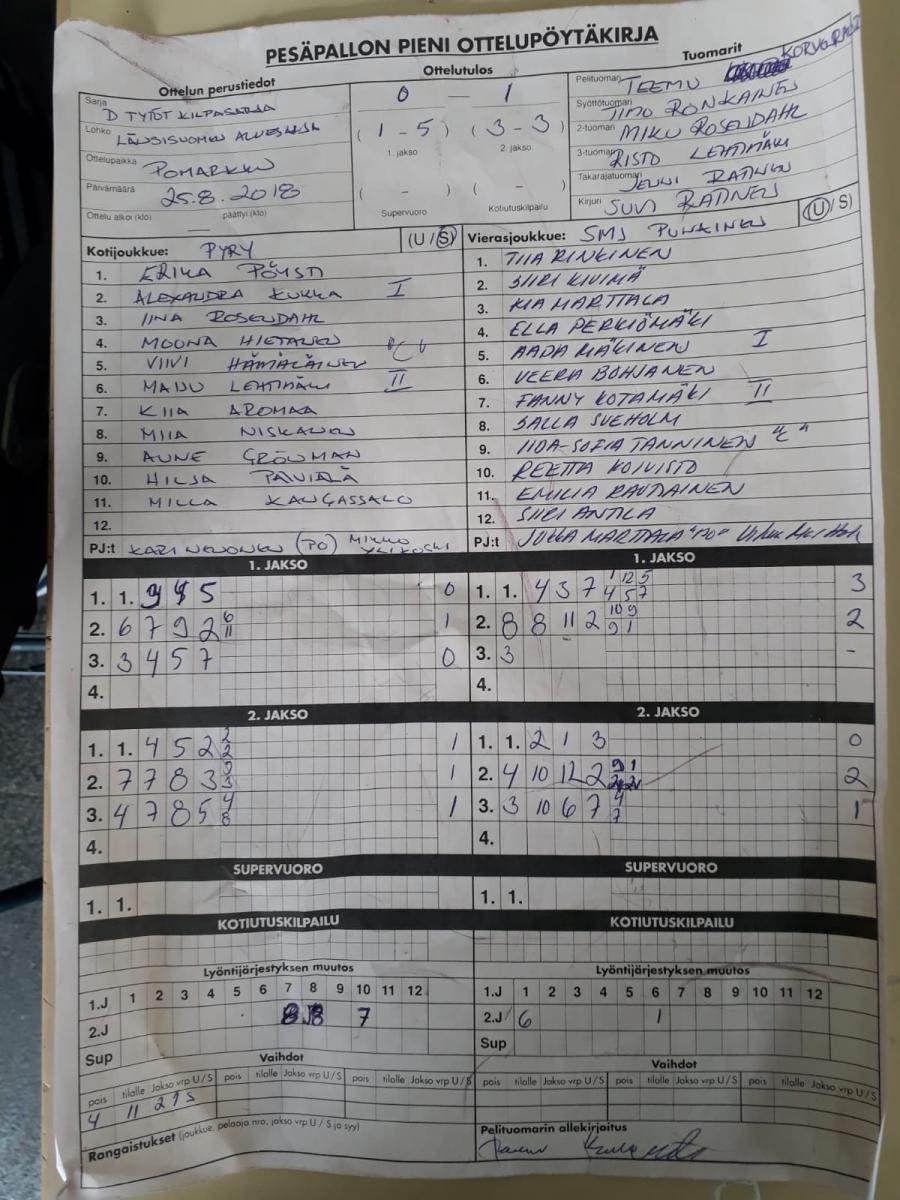 PESÄPALLON PIENI OTTELUPÖYTÄKIRJA
Ottelun perustiedot
Sarja D TYTÖT KILPASARJA
Lohko LÄNSISUOMEN ALUESARJA
Ottelupaikka POMARKKU
Päivämäärä 25.8.2018
Ottelu alkoi (klo) päättyi (klo)
Ottelutulos
0 – 1
( 1 – 5 ) ( 3 – 3 )
1. jakso 2. jakso
( – ) ( – )
Supervuoro Kotiutuskilpailu
Tuomarit
Pelituomari TEEMU
Syöttötuomari TIMO RONKAINEN
2-tuomari MIKU ROSENDAHL
3-tuomari RISTO LEHTIMÄKI
Takarajatuomari JENNI RATINEN
Kirjuri SUVI RATINEN
Kotijoukkue: PYRY (U/S)
1. ERIKA PÖYSTI
2. ALEXANDRA KUKKA I
3. IINA ROSENDAHL
4. MOONA HIETANEN
5. VIIVI HÄMÄLÄINEN "C"
6. MAIJU LEHTIMÄKI II
7. KIIA AROMAA
8. MIIA NISKANEN
9. AUNE GRÖNMAN
10. HILJA
11. MILLA KANGASSALO
12.
PJ:t KARI NEVONEN (PO) MIKKO YLIKOSKI
Vierasjoukkue: SMJ PUNAINEN (U/S)
1. TIIA RINKINEN
2. SIIRI KIVIMÄ
3. KIA MARTTALA
4. ELLA PERKIÖMÄKI
5. AADA MÄKINEN I
6. VEERA BOHJANEN
7. FANNY KOTAMÄKI II
8. SALLA SVEHOLM
9. IIDA-SOFIA TANNINEN "C"
10. REETTA KOIVISTO
11. EMILIA RAUTIAINEN
12. SIIRI ANTILA
PJ:t JUKKA MARTTALA "PO"
1. JAKSO
1. 1. 5 0
2. 6 7 9 2 6 11 1
3. 3 4 5 7 0
4.
1. JAKSO
1. 1. 4 3 7 1 12 5 4 5 7 3
2. 8 8 11 2 10 9 9 1 2
3. 3 -
4.
2. JAKSO
1. 1. 4 5 2 2 2 1
2. 7 7 8 3 3 1
3. 4 7 8 5 4 8 1
4.
2. JAKSO
1. 1. 2 1 3 0
2. 4 10 12 2 9 1 2
3. 3 10 6 7 4 7 1
4.
SUPERVUORO
1. 1.
SUPERVUORO
1. 1.
KOTIUTUSKILPAILU
KOTIUTUSKILPAILU
Lyöntijärjestyksen muutos
1.J 1 2 3 4 5 6 7 8 9 10 11 12
2.J 8 8 7
Sup
Lyöntijärjestyksen muutos
1.J 1 2 3 4 5 6 7 8 9 10 11 12
2.J 6 1
Sup
Vaihdot
pois tilalle Jakso vrp U/S pois tilalle Jakso vrp U/S pois tilalle Jakso vrp U/S
4 11 2 1 S
Vaihdot
pois tilalle Jakso vrp U/S pois tilalle Jakso vrp U/S pois tilalle Jakso vrp U/S
Rangaistukset (joukkue, pelaaja nro, jakso vrp U / S ja syy)
Pelituomarin allekirjoitus